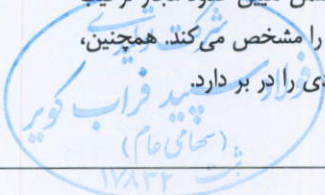 حدود مجاز ترکیب
را مشخص می‌کند. همچنین،
دی را در بر دارد.
شرکت
فولاد سپید فراب کویر
(سهامی عام)
ثبت ۱۷۸۳۲